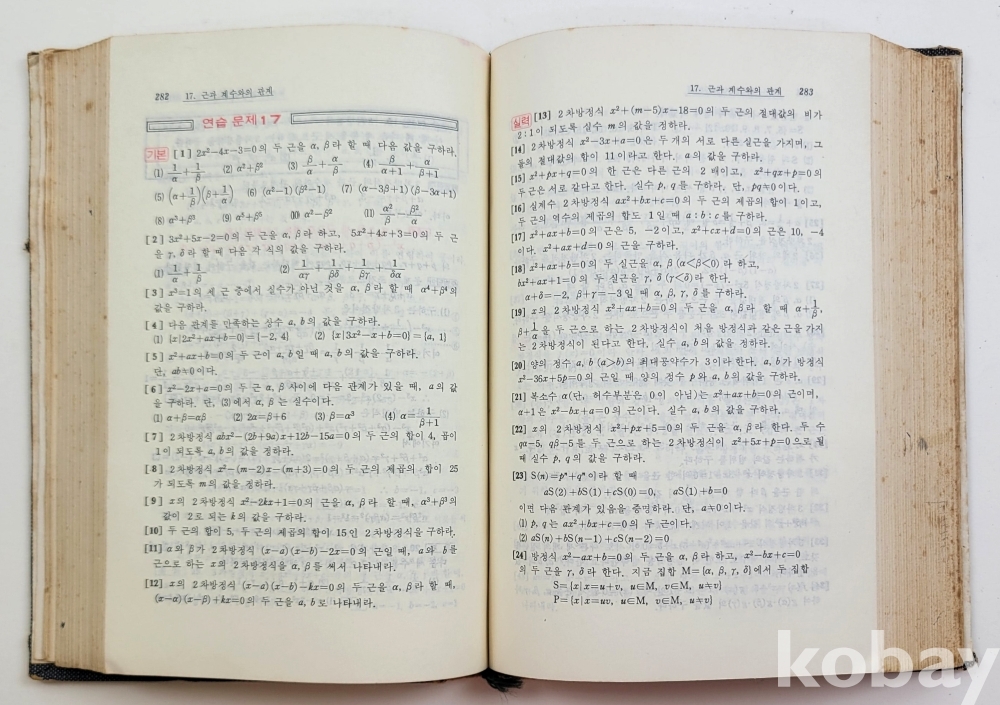 282 17. 근과 계수와의 관계
연습 문제 17
기본 [1] 2x²-4x-3=0의 두 근을 α, β라 할 때 다음 값을 구하라.
(1) 1/α+1/β (2) α²+β² (3) β/α+α/β (4) β/(α+1)+α/(β+1)
(5) (α+1/β)(β+1/α) (6) (α²-1)(β²-1) (7) (α-3β+1)(β-3α+1)
(8) α³+β³ (9) α⁵+β⁵ (10) α²-β² (11) α²/β-β²/α
[2] 3x²+5x-2=0의 두 근을 α, β라 하고, 5x²+4x+3=0의 두 근
을 γ, δ라 할 때 다음 각 식의 값을 구하라.
(1) 1/α+1/β (2) 1/αγ+1/βδ+1/βγ+1/δα
[3] x³=1의 세 근 중에서 실수가 아닌 것을 α, β라 할 때 α⁴+β⁴의
값을 구하라.
[4] 다음 관계를 만족하는 상수 a, b의 값을 구하라.
(1) {x|2x²+ax+b=0}={-2, 4} (2) {x|3x²-x+b=0}={a, 1}
[5] x²+ax+b=0의 두 근이 a, b일 때 a, b의 값을 구하라.
단, ab≠0이다.
[6] x²-2x+a=0의 두 근 α, β 사이에 다음 관계가 있을 때, a의 값
을 구하라. 단, (3)에서 α, β는 실수이다.
(1) α+β=αβ (2) 2α=β+6 (3) β=α³ (4) α=1/(β+1)
[7] 2차방정식 abx²-(2b+9a)x+12b-15a=0의 두 근의 합이 4, 곱이
1이 되도록 a, b의 값을 정하라.
[8] 2차방정식 x²-(m-2)x-(m+3)=0의 두 근의 제곱의 합이 25
가 되도록 m의 값을 정하라.
[9] x의 2차방정식 x²-2kx+1=0의 근을 α, β라 할 때, α³+β³의
값이 2로 되는 k의 값을 구하라.
[10] 두 근의 합이 5, 두 근의 제곱의 합이 15인 2차방정식을 구하라.
[11] α와 β가 2차방정식 (x-a)(x-b)-2x=0의 근일 때, a와 b를
근으로 하는 x의 2차방정식을 α, β를 써서 나타내라.
[12] x의 2차방정식 (x-a)(x-b)-kx=0의 두 근을 α, β라 할 때,
(x-α)(x-β)+kx=0의 두 근을 a, b로 나타내라.
17. 근과 계수와의 관계 283
실력 [13] 2차방정식 x²+(m-5)x-18=0의 두 근의 절대값의 비가
2:1이 되도록 실수 m의 값을 정하라.
[14] 2차방정식 x²-3x+a=0은 두 개의 서로 다른 실근을 가지며, 그
들의 절대값의 합이 11이라고 한다. a의 값을 구하라.
[15] x²+px+q=0의 한 근은 다른 근의 2배이고, x²+qx+p=0의
두 근은 서로 같다고 한다. 실수 p, q를 구하라. 단, pq≠0이다.
[16] 실계수 2차방정식 ax²+bx+c=0의 두 근의 제곱의 합이 1이고,
두 근의 역수의 제곱의 합도 1일 때 a:b:c를 구하라.
[17] x²+ax+b=0의 근은 5, -2이고, x²+cx+d=0의 근은 10, -4
이다. x²+ax+d=0의 근을 구하라.
[18] x²+ax+b=0의 두 실근을 α, β(α<β<0)라 하고,
bx²+ax+1=0의 두 실근을 γ, δ(γ<δ)라 한다.
α+δ=-2, β+γ=-3일 때 α, β, γ, δ를 구하라.
[19] x의 2차방정식 x²+ax+b=0의 두 근을 α, β라 할 때 α+1/β,
β+1/α을 두 근으로 하는 2차방정식이 처음 방정식과 같은 근을 가지
는 2차방정식이 된다고 한다. 실수 a, b의 값을 정하라.
[20] 양의 정수 a, b(a>b)의 최대공약수가 3이라 한다. a, b가 방정식
x²-36x+5p=0의 근일 때 양의 정수 p와 a, b의 값을 구하라.
[21] 복소수 α(단, 허수부분은 0이 아님)는 x²+ax+b=0의 근이며,
α+1은 x²-bx+a=0의 근이다. 실수 a, b의 값을 구하라.
[22] x의 2차방정식 x²+px+5=0의 두 근을 α, β라 한다. 두 수
qα-5, qβ-5를 두 근으로 하는 2차방정식이 x²+5x+p=0으로 될
때 실수 p, q의 값을 구하라.
[23] S(n)=pⁿ+qⁿ이라 할 때
aS(2)+bS(1)+cS(0)=0, aS(1)+b=0
이면 다음 관계가 있음을 증명하라. 단, a≠0이다.
(1) p, q는 ax²+bx+c=0의 두 근이다.
(2) aS(n)+bS(n-1)+cS(n-2)=0
[24] 방정식 x²-ax+b=0의 두 근을 α, β라 하고, x²-bx+c=0
의 두 근을 γ, δ라 한다. 지금 집합 M={α, β, γ, δ}에서 두 집합
S={x|x=u+v, u∈M, v∈M, u≠v}
P={x|x=uv, u∈M, v∈M, u≠v}
kobay